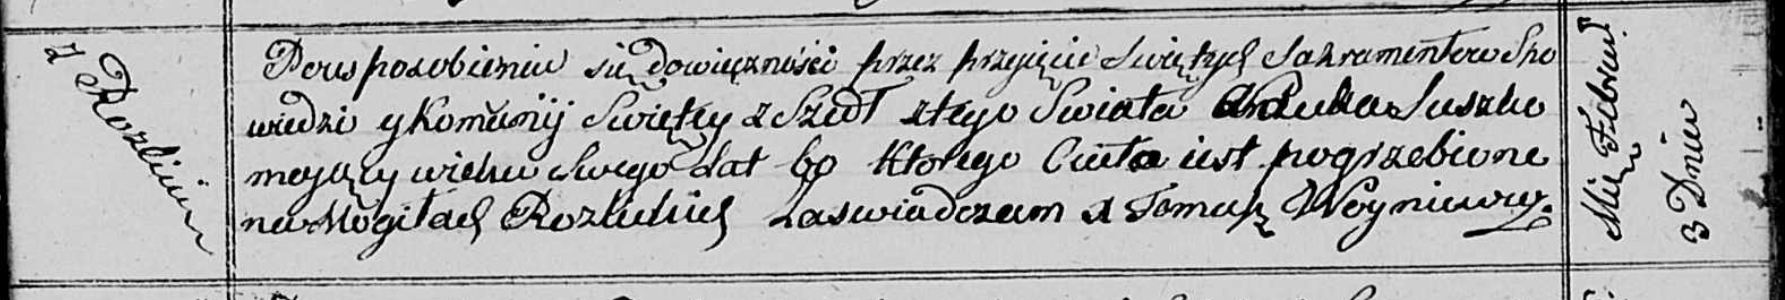 z Rozlicia
Po usposobieniu się do więczności przez przyięcie Swiętych Sakramentow Spo
wiedzi y Komunij Swiętey zszedł z tego Swiata Suszko
meiący wieku swego Lat 60 ktorego Ciało iest pogrzebione
na Mogiłach Rozluckich Zaswiadczam X Tomasz Woyniewicz.
Mie Februar
3 Dnia